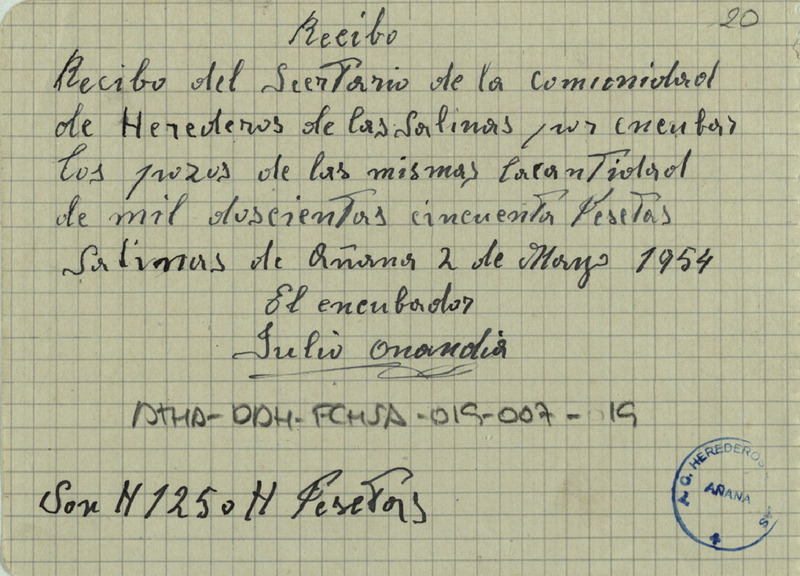 20
Recibo
Recibo del Scertario de la comunidad
de Herederos de las Salinas por encubar
los pozos de las mismas lacantidad
de mil doscientas cincuenta Pesetas
Salinas de Añana 2 de Mayo 1954
El encubador
Julio Onandia
ATHA-DAH-FCHSA-019-007-19
Son H 1250 H Pesetas
HEREDEROS
AÑANA